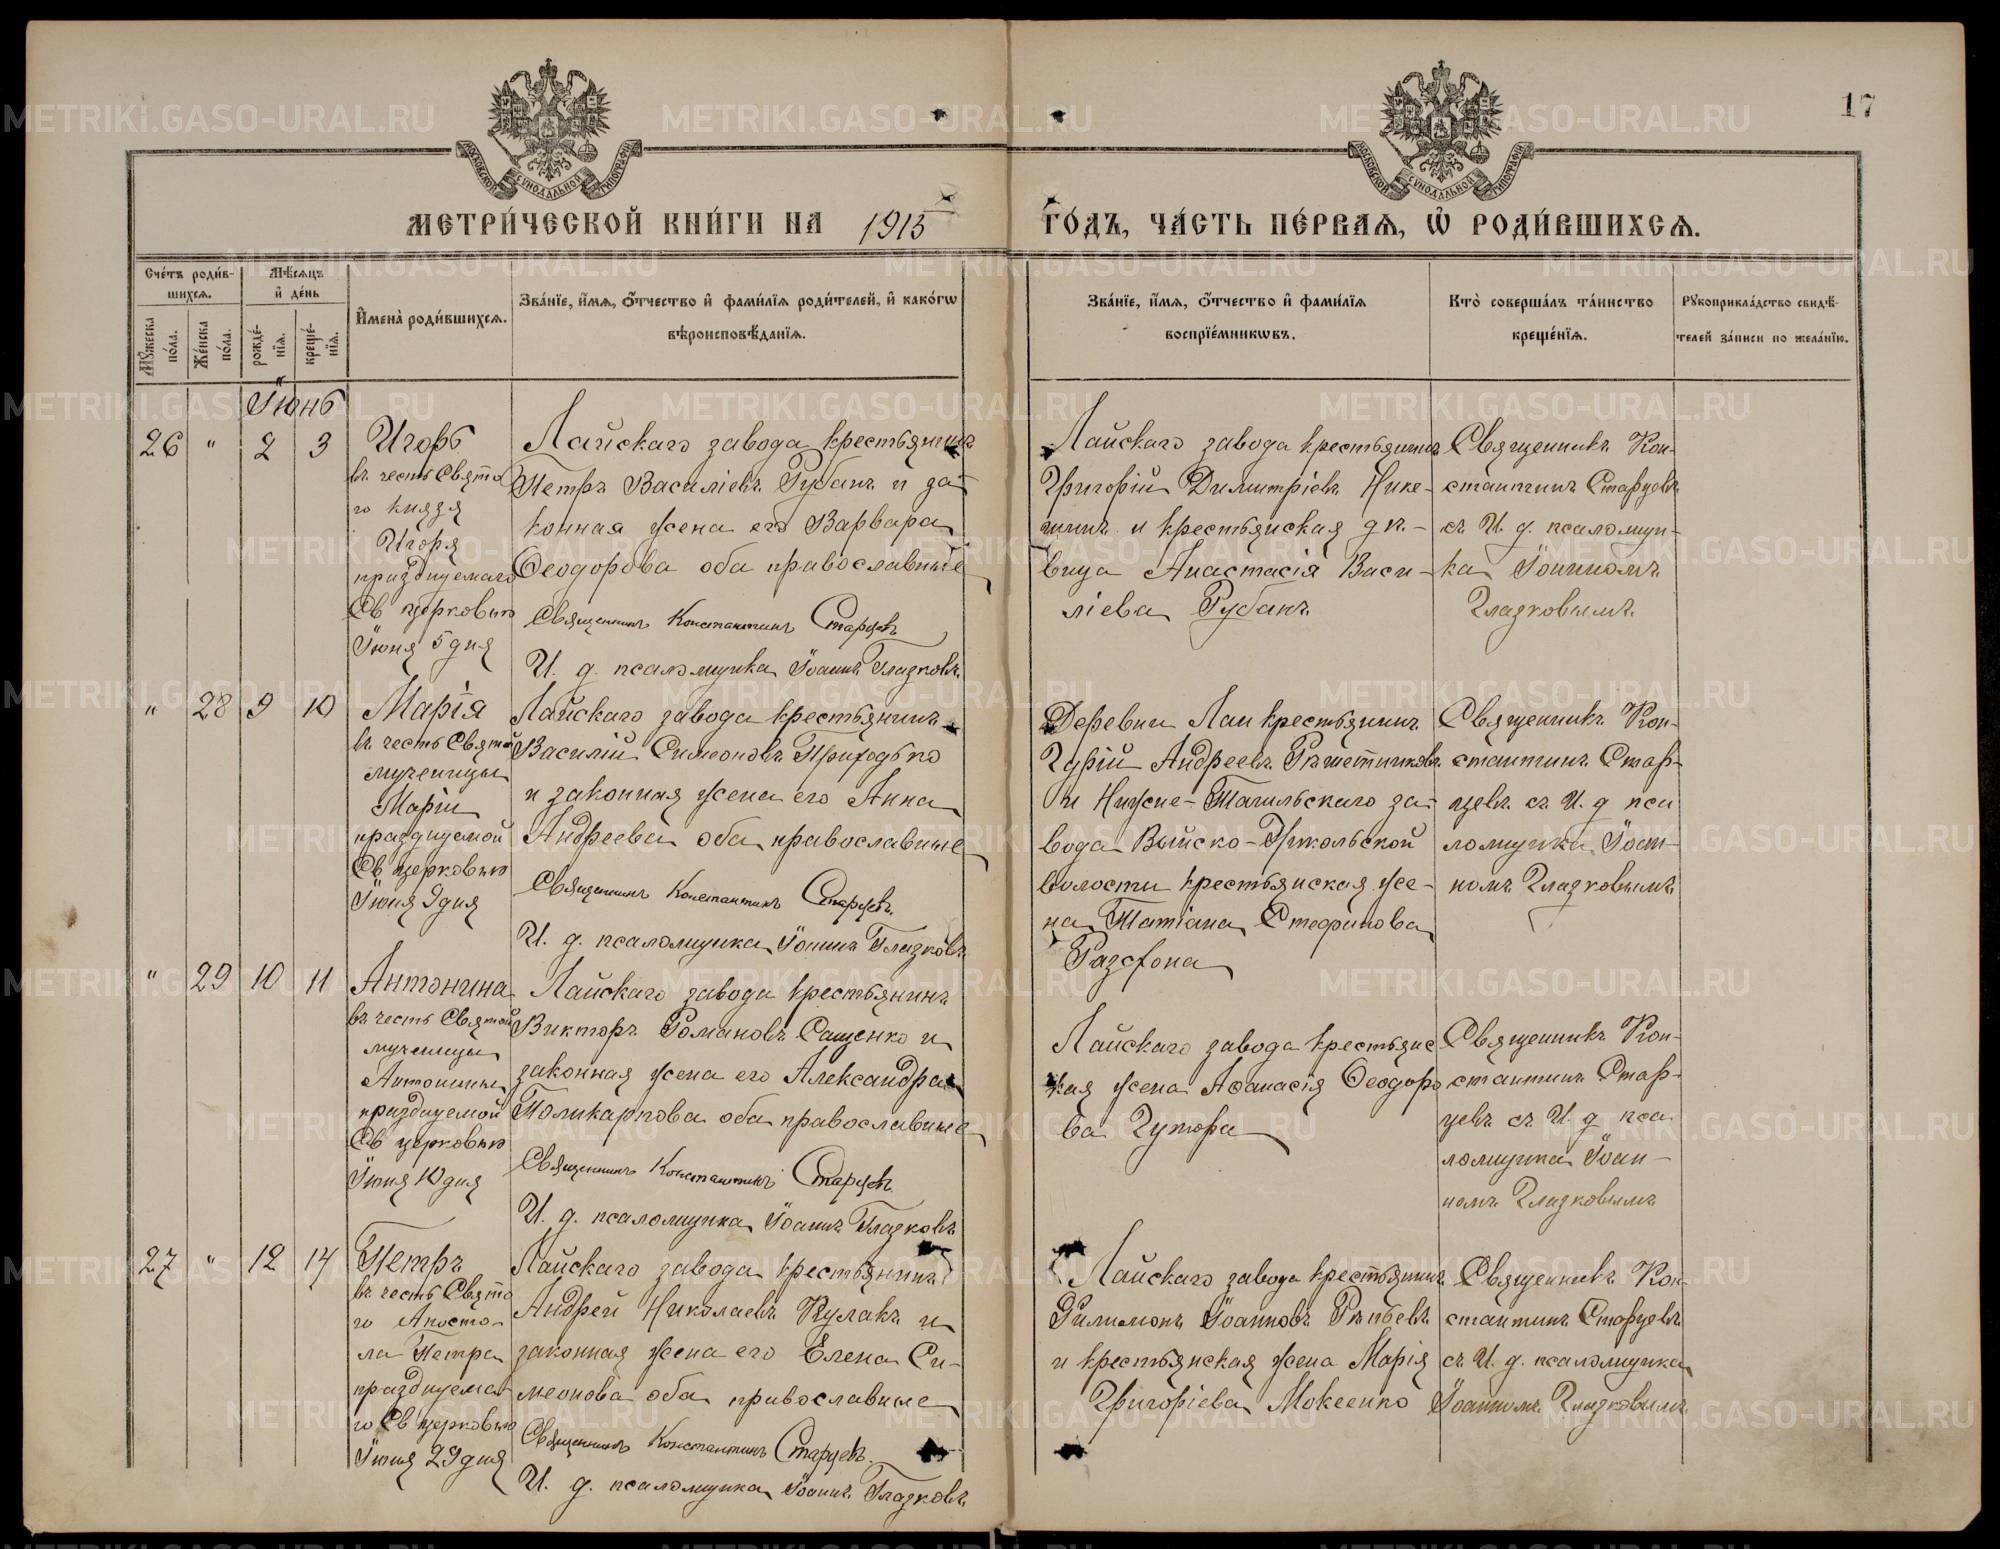 17
МОСКОВСКОЙ СѴНОДАЛЬНОЙ ТИПОГРАФІИ
МОСКОВСКОЙ СѴНОДАЛЬНОЙ ТИПОГРАФІИ
МЕТРИ́ЧЕСКОЙ КНИ́ГИ НА 1915 ГО́ДЪ, ЧА́СТЬ ПЕ́РВАѦ, Ѡ҆ РОДИ́ВШИХСѦ.
Сче́тъ роди́в-
шихсѧ.
Мѣ́сѧцъ
и҆ де́нь
И҆мена̀ роди́вшихсѧ.
Зва́нїе, и҆́мѧ, ѻ҆́тчество и҆ фами́лїѧ роди́телей, и҆ како́гѡ
вѣроисповѣ́данїѧ.
Мꙋ́жеска
по́ла.
Же́нска
по́ла.
рожде́-
нїѧ.
креще́-
нїѧ.
Зва́нїе, и҆́мѧ, ѻ҆́тчество и҆ фами́лїѧ
воспрїе́мникѡвъ.
Кто̀ соверша́лъ та́инство
креще́нїѧ.
Рꙋкоприкла́дство свидѣ́-
телей за́писи по жела́нїю.
Іюнь
26 " 2 3
Игорь
въ честь Свято
го князя
Игоря
празднуемаго
Св церковью
Іюня 5 дня
Лайскаго завода крестьянинъ
Петръ Василіевъ Рубанъ и за-
конная жена его Варвара
Ѳеодорова оба православные
Священникъ Константинъ Старцевъ
И. д. псаломщика Іоаннъ Глазковъ
Лайскаго завода крестьянинъ
Григорій Димитріевъ Нике-
шинъ и крестьянская дѣ-
вица Анастасія Васи-
ліева Рубанъ
Священникъ Кон-
стантинъ Старцевъ
съ И. д. псаломщи-
ка Іоанномъ
Глазковымъ
" 28 9 10
Марія
въ честь Святой
мученицы
Маріи
празднуемой
Св церковью
Іюня 9 дня
Лайскаго завода крестьянинъ
Василій Симеоновъ Приходько
и законная жена его Анна
Андреева оба православные
Священникъ Константинъ Старцевъ.
И. д. псаломщика Іоаннъ Глазковъ
Деревни Лаи крестьянинъ
Гурій Андреевъ Рѣшетниковъ
и Нижне-Тагильскаго за-
вода Выйско-Никольской
волости крестьянская же-
на Татіана Стефанова
Священникъ Кон-
стантинъ Стар-
цевъ съ И. д пса
ломщика Іоан-
номъ Глазковымъ
" 29 10 11
Антонина
въ честь Святой
мученицы
Антонины
празднуемой
Св церковью
Іюня 10 дня
Лайскаго завода крестьянинъ
Викторъ Романовъ Сащенко и
законная жена его Александра
Поликарпова оба православные
Священникъ Константинъ Старцевъ.
И. д. псаломщика Іоаннъ Глазковъ
Лайскаго завода крестьянс
кая жена Аѳанасія Ѳеодоро
ва Гутора
Священникъ Кон-
стантинъ Стар-
цевъ съ И. д пса
ломщика Іоан-
номъ Глазковымъ
27 " 12 14
Петръ
въ честь Свято
го Апосто-
ла Петра
празднуема-
го Св церковью
Іюня 29 дня
Лайскаго завода крестьянинъ
Андрей Николаевъ Кулакъ и
законная жена его Елена Си-
меонова оба православные
Священникъ Константинъ Старцевъ.
И. д. псаломщика Іоаннъ Глазковъ
Лайскаго завода крестьянинъ
Филимонъ Іоанновъ Рѣпьевъ
и крестьянская жена Марія
Григоріева Мокеенко
Священникъ Кон-
стантинъ Старцевъ
съ И. д. псаломщика
Іоанномъ Глазковымъ
METRIKI.GASO-URAL.RU